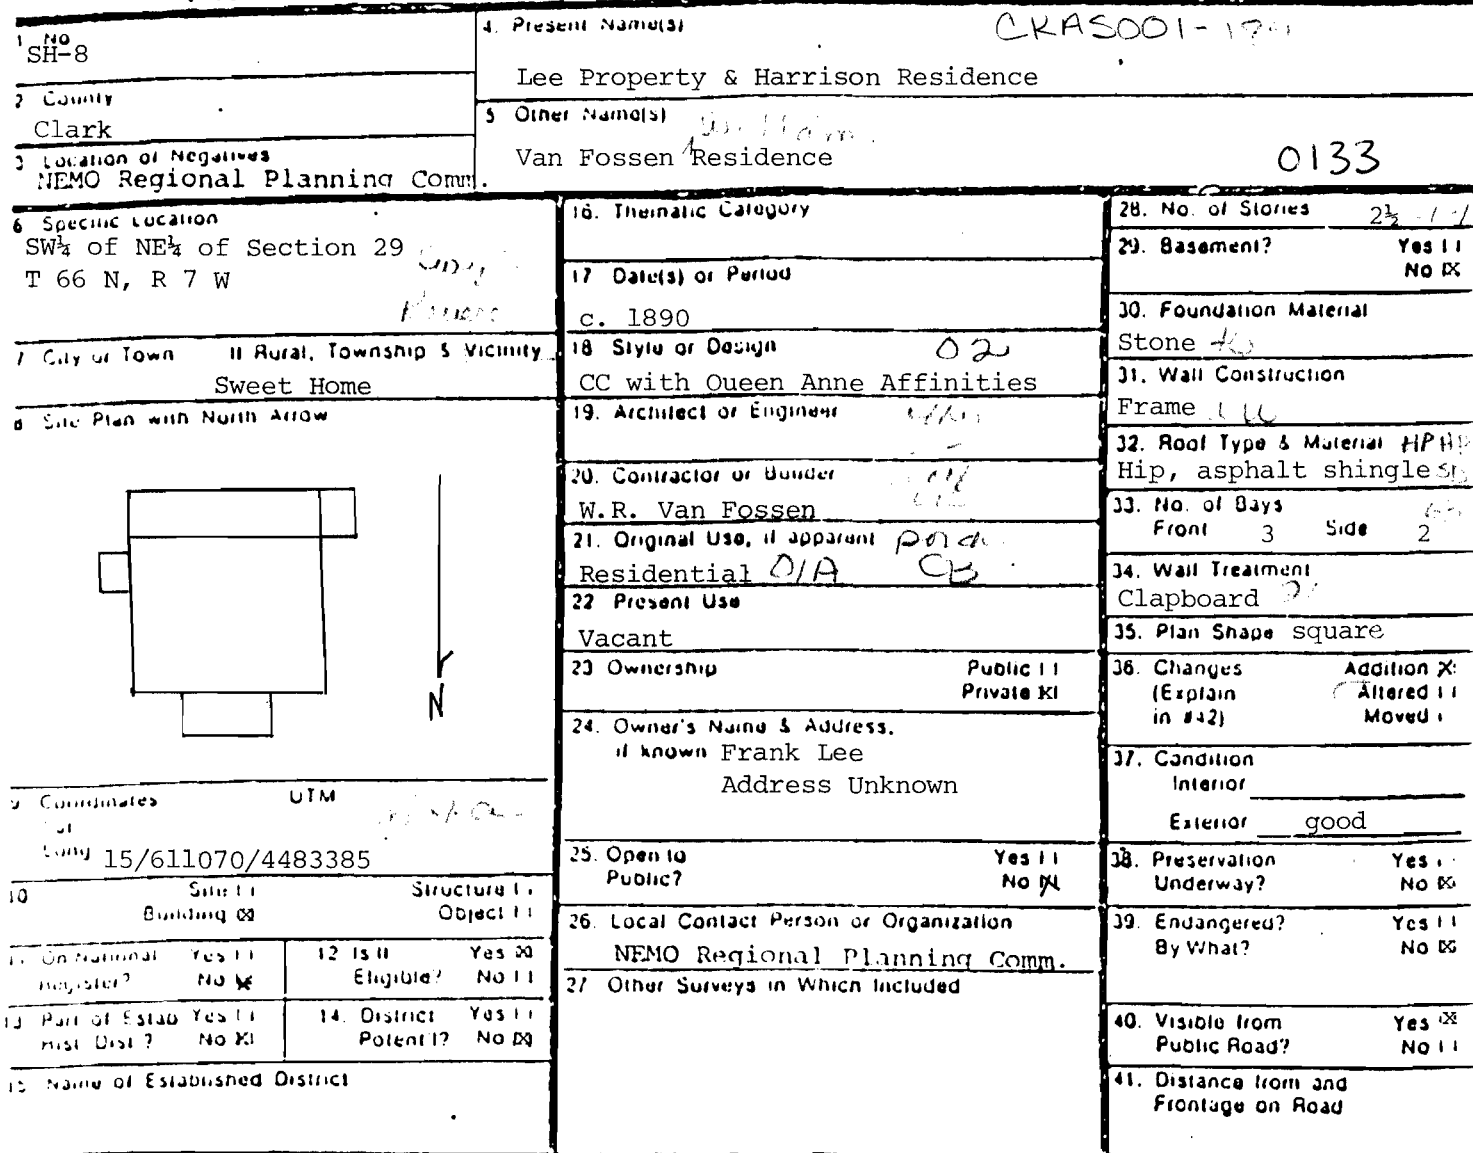 1 No
SH-8
2 County
Clark
3 Location of Negatives
NEMO Regional Planning Comm.
4. Present Name(s)
CKAS001-
Lee Property & Harrison Residence
5 Other Name(s)
Van Fossen Residence
0133
6 Specific Location
SW¼ of NE¼ of Section 29
T 66 N, R 7 W
7 City or Town If Rural, Township & Vicinity
Sweet Home
8 Site Plan with North Arrow
N
9 Coordinates UTM
Lat
Long 15/611070/4483385
10 Site [ ] Structure [ ]
Building [X] Object [ ]
11 On National Register? Yes [ ] No [X]
12 Is It Eligible? Yes [X] No [ ]
13 Part of Estab Hist Dist? Yes [ ] No [X]
14. District Potent'l? Yes [ ] No [X]
15 Name of Established District
16. Thematic Category
17 Date(s) or Period
c. 1890
18 Style or Design 02
CC with Queen Anne Affinities
19. Architect or Engineer
20. Contractor or Builder
W.R. Van Fossen
21. Original Use, if apparent porch
Residential 01A CB
22 Present Use
Vacant
23 Ownership Public [ ]
Private [X]
24. Owner's Name & Address,
if known Frank Lee
Address Unknown
25. Open to Public? Yes [ ] No [X]
26. Local Contact Person or Organization
NEMO Regional Planning Comm.
27 Other Surveys in Which Included
28. No. of Stories 2½
29. Basement? Yes [ ]
No [X]
30. Foundation Material
Stone 40
31. Wall Construction
Frame
32. Roof Type & Material HP
Hip, asphalt shingles
33. No. of Bays
Front 3 Side 2
34. Wall Treatment
Clapboard
35. Plan Shape square
36. Changes Addition [X]
(Explain Altered [ ]
in #42) Moved [ ]
37. Condition
Interior
Exterior good
38. Preservation Yes [ ]
Underway? No [X]
39. Endangered? Yes [ ]
By What? No [X]
40. Visible from Yes [X]
Public Road? No [ ]
41. Distance from and
Frontage on Road